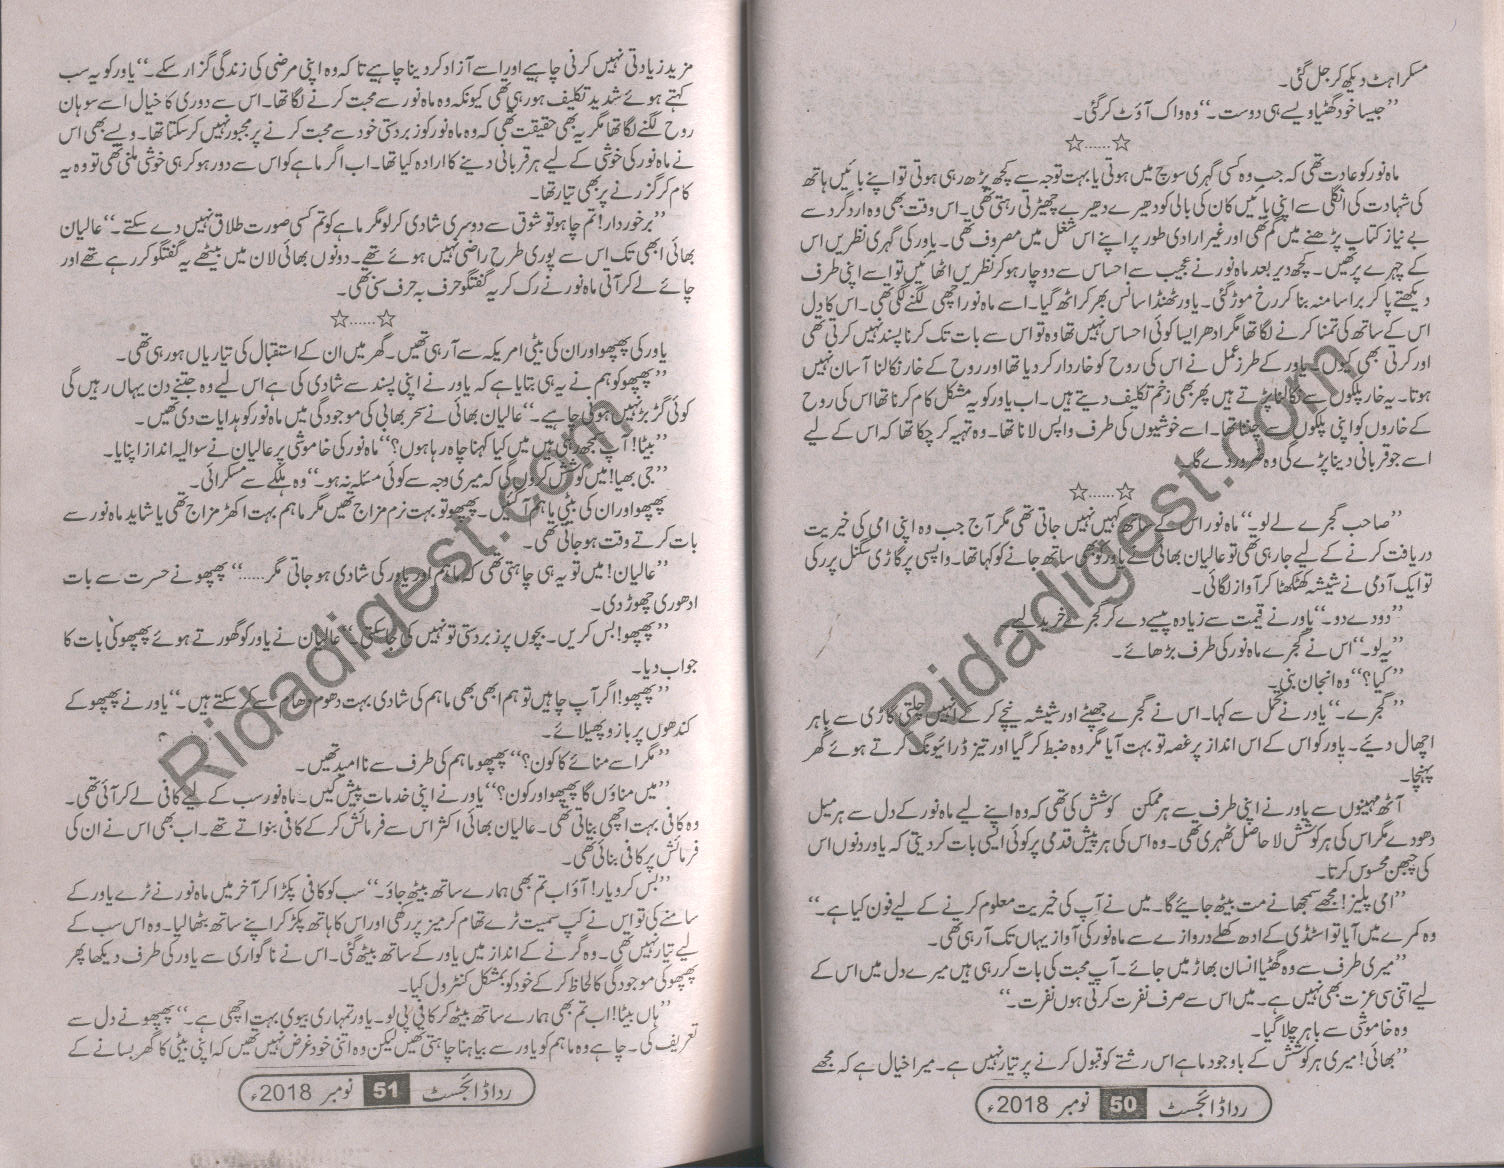 مسکراہٹ دیکھ کر جل گئی۔
’’جیسا خود گھٹیا ویسے ہی دوست۔‘‘ وہ واک آؤٹ کر گئی۔
☆......☆
ماہ نور کو عادت تھی کہ جب وہ کسی گہری سوچ میں ہوتی یا بہت توجہ سے کچھ پڑھ رہی ہوتی تو اپنے بائیں ہاتھ
کی شہادت کی انگلی سے اپنی بائیں کان کی بالی کو دھیرے دھیرے چھیڑتی رہتی تھی۔ اس وقت بھی وہ اردگرد سے
بے نیاز کتاب پڑھنے میں گم تھی اور غیر ارادی طور پر اپنے اس شغل میں مصروف تھی۔ یاور کی گہری نظریں اس
کے چہرے پر تھیں۔ کچھ دیر بعد ماہ نور نے عجیب سے احساس سے دوچار ہو کر نظریں اٹھائیں تو اسے اپنی طرف
دیکھتے پا کر برا سا منہ بنا کر رخ موڑ گئی۔ یاور ٹھنڈا سانس بھر کر اٹھ گیا۔ اسے ماہ نور اچھی لگنے لگی تھی۔ اس کا دل
اس کے ساتھ کی تمنا کرنے لگا تھا مگر ادھر ایسا کوئی احساس نہیں تھا وہ تو اس سے بات تک کرنا پسند نہیں کرتی تھی
اور کرتی بھی کیوں۔ یاور کے طرز عمل نے اس کی روح کو خاردار کر دیا تھا اور روح کے خار نکالنا آسان نہیں
ہوتا۔ یہ خار پلکوں سے نکالنا پڑتے ہیں پھر بھی زخم تکلیف دیتے ہیں۔ اب یاور کو یہ مشکل کام کرنا تھا اس کی روح
کے خاروں کو اپنی پلکوں سے چننا تھا۔ اسے خوشیوں کی طرف واپس لانا تھا۔ وہ تہیہ کر چکا تھا کہ اس کے لیے
اسے جو قربانی دینا پڑے گی وہ ضرور دے گا۔
☆......☆
’’صاحب گجرے لے لو۔‘‘ ماہ نور اس کے ساتھ کہیں نہیں جاتی تھی مگر آج جب وہ اپنی امی کی خیریت
دریافت کرنے کے لیے جا رہی تھی تو عالیان بھائی نے یاور کو بھی ساتھ جانے کو کہا تھا۔ واپسی پر گاڑی سگنل پر رکی
تو ایک آدمی نے شیشہ کھٹکھٹا کر آواز لگائی۔
’’دو دے دو۔‘‘ یاور نے قیمت سے زیادہ پیسے دے کر گجرے خرید لیے۔
’’یہ لو۔‘‘ اس نے گجرے ماہ نور کی طرف بڑھائے۔
’’کیا؟‘‘ وہ انجان بنی۔
’’گجرے۔‘‘ یاور نے تحمل سے کہا۔ اس نے گجرے جھپٹے اور شیشہ نیچے کر کے انہیں چلتی گاڑی سے باہر
اچھال دیئے۔ یاور کو اس کے اس انداز پر غصہ تو بہت آیا مگر وہ ضبط کر گیا اور تیز ڈرائیونگ کرتے ہوئے گھر
پہنچا۔
آٹھ مہینوں سے یاور نے اپنی طرف سے ہر ممکن کوشش کی تھی کہ وہ اپنے لیے ماہ نور کے دل سے ہر میل
دھو دے مگر اس کی ہر کوشش لاحاصل ٹھہری تھی۔ وہ اس کی ہر پیش قدمی پر کوئی ایسی بات کر دیتی کہ یاور دنوں اس
کی چبھن محسوس کرتا۔
’’امی پلیز! مجھے سمجھانے مت بیٹھ جائیے گا۔ میں نے آپ کی خیریت معلوم کرنے کے لیے فون کیا ہے۔‘‘
وہ کمرے میں آیا تو اسٹڈی کے ادھ کھلے دروازے سے ماہ نور کی آواز یہاں تک آ رہی تھی۔
’’میری طرف سے وہ گھٹیا انسان بھاڑ میں جائے۔ آپ محبت کی بات کر رہی ہیں میرے دل میں اس کے
لیے اتنی سی عزت بھی نہیں ہے۔ میں اس سے صرف نفرت کرتی ہوں نفرت۔‘‘
وہ خاموشی سے باہر چلا گیا۔
’’بھائی! میری ہر کوشش کے باوجود ماہے اس رشتے کو قبول کرنے پر تیار نہیں ہے۔ میرا خیال ہے کہ مجھے
ردا ڈائجسٹ 50 نومبر 2018ء
مزید زیادتی نہیں کرنی چاہیے اور اسے آزاد کر دینا چاہیے تا کہ وہ اپنی مرضی کی زندگی گزار سکے۔‘‘ یاور کو یہ سب
کہتے ہوئے شدید تکلیف ہو رہی تھی کیونکہ وہ ماہ نور سے محبت کرنے لگا تھا۔ اس سے دوری کا خیال اسے سوہان
روح لگنے لگا تھا مگر یہ بھی حقیقت تھی کہ وہ ماہ نور کو زبردستی خود سے محبت کرنے پر مجبور نہیں کر سکتا تھا۔ ویسے بھی اس
نے ماہ نور کی خوشی کے لیے ہر قربانی دینے کا ارادہ کیا تھا۔ اب اگر ماہے کو اس سے دور ہو کر ہی خوشی ملنی تھی تو وہ یہ
کام کر گزرنے پر بھی تیار تھا۔
’’برخوردار! تم چاہو تو شوق سے دوسری شادی کر لو مگر ماہے کو تم کسی صورت طلاق نہیں دے سکتے۔‘‘ عالیان
بھائی ابھی تک اس سے پوری طرح راضی نہیں ہوئے تھے۔ دونوں بھائی لان میں بیٹھے یہ گفتگو کر رہے تھے اور
چائے لے کر آتی ماہ نور نے رک کر یہ گفتگو حرف بہ حرف سنی تھی۔
☆......☆
یاور کی پھپھو اور ان کی بیٹی امریکہ سے آ رہی تھیں۔ گھر میں ان کے استقبال کی تیاریاں ہو رہی تھی۔
’’پھپھو کو ہم نے یہ ہی بتایا ہے کہ یاور نے اپنی پسند سے شادی کی ہے اس لیے وہ جتنے دن یہاں رہیں گی
کوئی گڑبڑ نہیں ہونی چاہیے۔‘‘ عالیان بھائی نے سحر بھابی کی موجودگی میں ماہ نور کو ہدایات دی تھیں۔
’’بیٹا! آپ سمجھ رہی ہیں میں کیا کہنا چاہ رہا ہوں؟‘‘ ماہ نور کی خاموشی پر عالیان نے سوالیہ انداز اپنایا۔
’’جی بھیا! میں کوشش کروں گی کہ میری وجہ سے کوئی مسئلہ نہ ہو۔‘‘ وہ ہلکے سے مسکرائی۔
پھپھو اور ان کی بیٹی ماہم آ گئیں۔ پھپھو تو بہت نرم مزاج تھیں مگر ماہم بہت اکھڑ مزاج تھی یا شاید ماہ نور سے
بات کرتے وقت ہو جاتی تھی۔
’’عالیان! میں تو یہ ہی چاہتی تھی کہ ماہم اور یاور کی شادی ہو جاتی مگر......‘‘ پھپھو نے حسرت سے بات
ادھوری چھوڑ دی۔
’’پھپھو! بس کریں۔ بچوں پر زبردستی تو نہیں کی جا سکتی۔‘‘ عالیان نے یاور کو گھورتے ہوئے پھپھو کی بات کا
جواب دیا۔
’’پھپھو! اگر آپ چاہیں تو ہم ابھی بھی ماہم کی شادی بہت دھوم دھام سے کر سکتے ہیں۔‘‘ یاور نے پھپھو کے
کندھوں پر بازو پھیلائے۔
’’مگر اسے منائے گا کون؟‘‘ پھپھو ماہم کی طرف سے ناامید تھیں۔
’’میں مناؤں گا پھپھو اور کون؟‘‘ یاور نے اپنی خدمات پیش کیں۔ ماہ نور سب کے لیے کافی لے کر آئی تھی۔
وہ کافی بہت اچھی بناتی تھی۔ عالیان بھائی اکثر اس سے فرمائش کر کے کافی بنواتے تھے۔ اب بھی اس نے ان کی
فرمائش پر کافی بنائی تھی۔
’’بس کرو یار! آؤ اب تم بھی ہمارے ساتھ بیٹھ جاؤ۔‘‘ سب کو کافی پکڑا کر آخر میں ماہ نور نے ٹرے یاور کے
سامنے کی تو اس نے کپ سمیت ٹرے تھام کر میز پر رکھی اور اس کا ہاتھ پکڑ کر اپنے ساتھ بٹھا لیا۔ وہ اس سب کے
لیے تیار نہیں تھی۔ وہ گرنے کے انداز میں یاور کے ساتھ بیٹھ گئی۔ اس نے ناگواری سے یاور کی طرف دیکھا پھر
پھپھو کی موجودگی کا لحاظ کر کے خود کو بمشکل کنٹرول کیا۔
’’ہاں بیٹا! اب تم بھی ہمارے ساتھ بیٹھ کر کافی پی لو۔ یاور تمہاری بیوی بہت اچھی ہے۔‘‘ پھپھو نے دل سے
تعریف کی۔ چاہے وہ ماہم کو یاور سے بیاہنا چاہتی تھیں لیکن وہ اتنی خود غرض نہیں تھیں کہ اپنی بیٹی کا گھر بسانے کے
ردا ڈائجسٹ 51 نومبر 2018ء
Ridadigest.com
Ridadigest.com